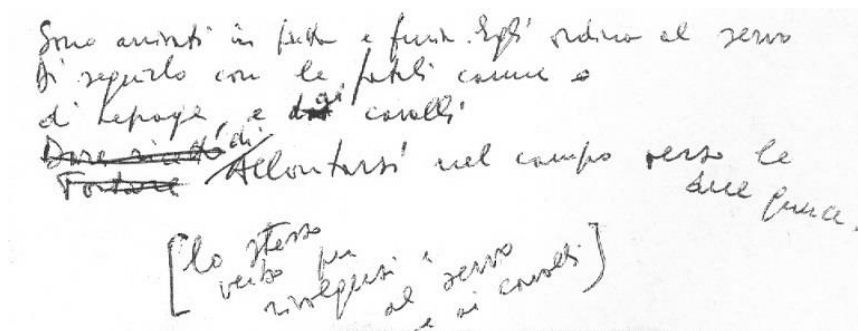 Sono arrivati in fretta e furia. Egli ordina al servo
Di seguirlo con le fatali canne
di Lepage, e ai cavalli
di
Allontarsi nel campo verso le
due querce.
[lo stesso
verbo per
rivolgersi
al servo
e ai cavalli]